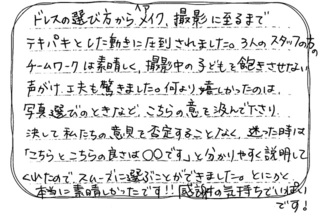 ドレスの選び方からヘアメイク、撮影に至るまで
テキパキとした動きに圧到されました。3人のスタッフの方の
チームワークは素晴しく、撮影中の子どもを飽きさせない
声がけ、工夫も驚きました。何より嬉しかったのは、
写真選びのときなど、こちらの意を汲んで下さり
決して私たちの意見を否定することなく、迷った時は
「こちらとこちらの良さは〇〇です」と分かりやすく説明して
くれたので、スムーズに選ぶことができました。とにかく
本当に素晴しかったです!!感謝の気持ちでいっぱい
です!